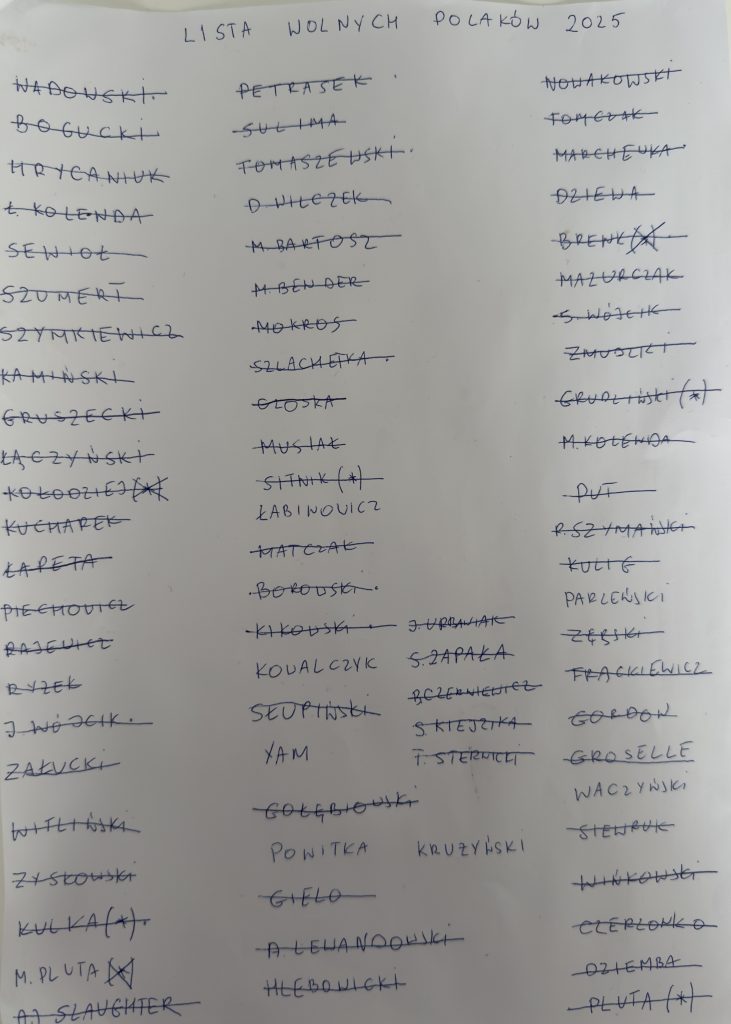 LISTA WOLNYCH POLAKÓW 2025
WADOWSKI.
BOGUCKI
HRYCANIUK
Ł. KOLENDA
SEWIOŁ
SZUMERT
SZYMKIEWICZ
KAMIŃSKI
GRUSZECKI
ŁĄCZYŃSKI
KOŁODZIEJ (*)
KUCHAREK
ŁAPETA
PIECHOWICZ
RAJEWICZ
RYŻEK
J WÓJCIK.
ZAŁUCKI
WITLIŃSKI
ZYSKOWSKI
KULKA (*).
M. PLUTA (*)
AJ SLAUGHTER
PETRASEK.
SULIMA
TOMASZEWSKI.
D. WILCZEK
M. BARTOSZ
M. BENDER
MOKROS
SZLACHETKA.
GŁOSKA
MUSIAŁ
SITNIK (*)
ŁABINOWICZ
MATCZAK
BOROWSKI.
KIKOWSKI.
KOWALCZYK
SŁUPIŃSKI
YAM
GOŁĘBIOWSKI
POWITKA
GIELO
A. LEWANDOWSKI
HLEBOWICKI
J. URBANIAK
S. ZAPAŁA
B CZERNIEWICZ
S KIEJZIKA
T. STERNICKI
KRUŻYŃSKI
NOWAKOWSKI
TOMCZAK
MARCHEWKA
DZIEWA
BRENK (*)
MAZURCZAK
S. WÓJCIK
ZMUDZKI
GRUDZIŃSKI (*)
M. KOLENDA
PUT
R. SZYMAŃSKI
KULIG
PARLEŃSKI
ZĘBSKI
FRĄCKIEWICZ
GORDON
GROSELLE
WACZYŃSKI
SIEWRUK
WIŃKOWSKI
CZERLONKO
DZIEMBA
PLUTA (*)